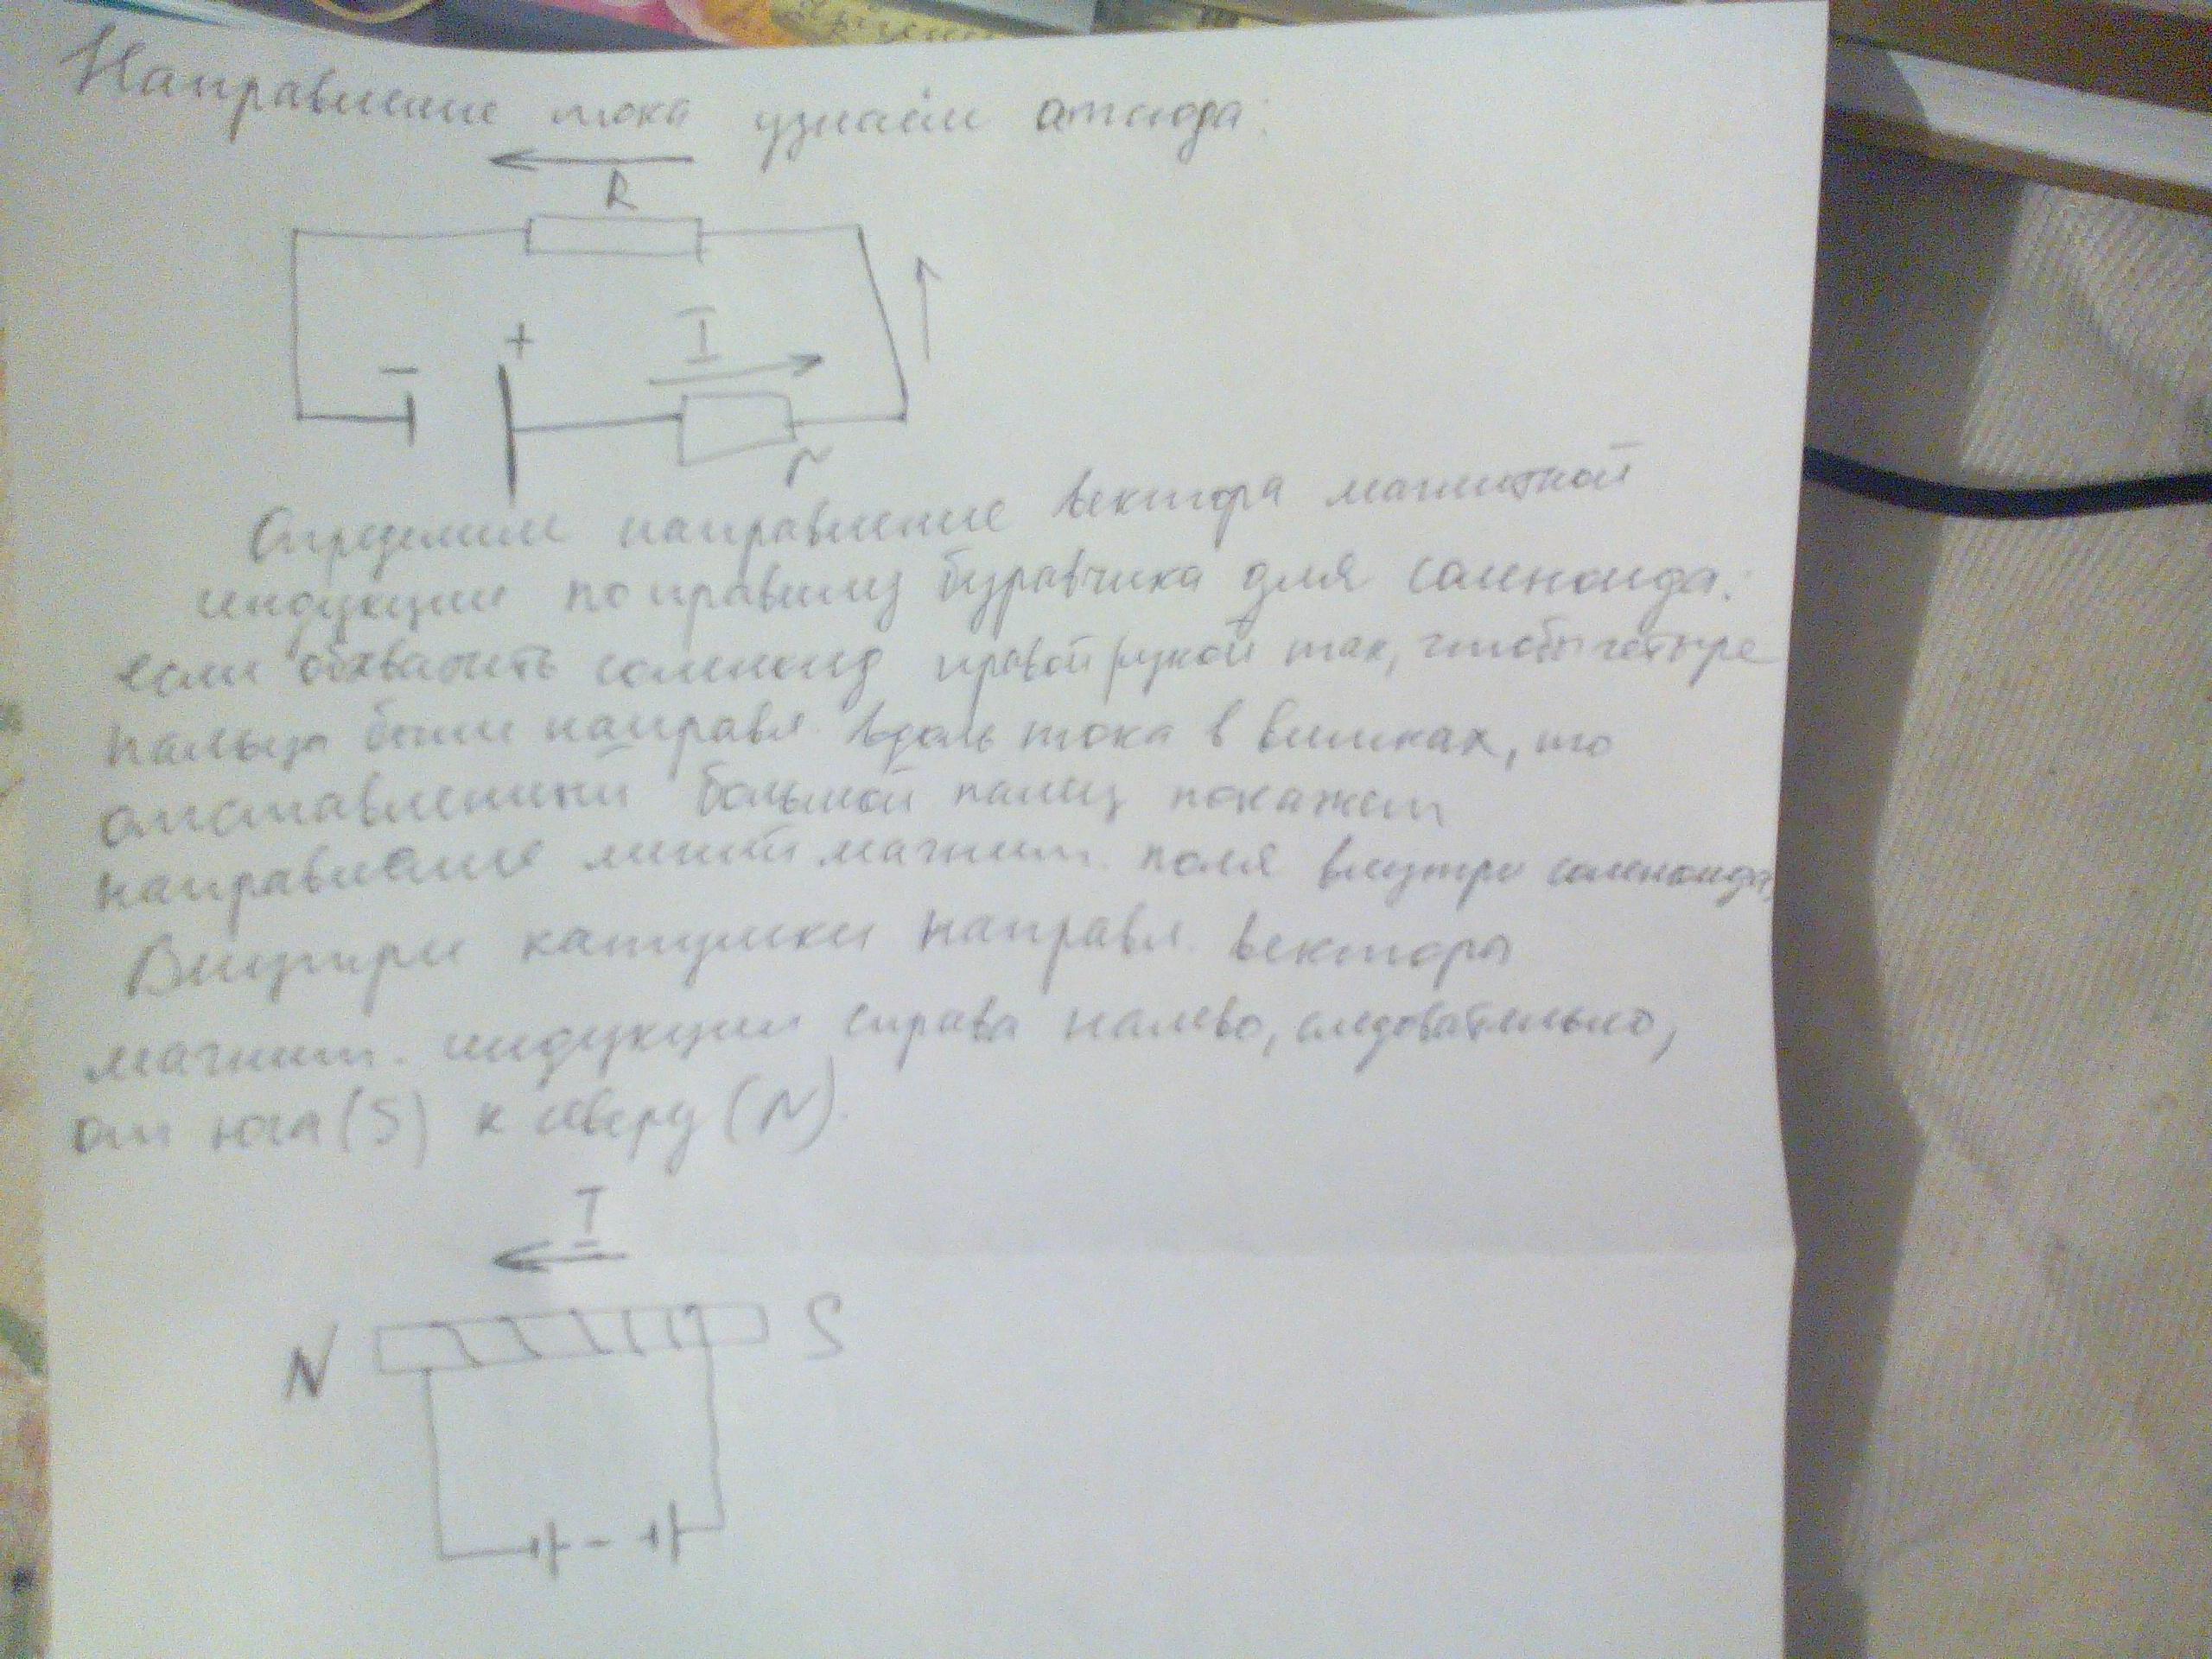 Направление тока узнаём отсюда:
R
- + I
r
Определим направление вектора магнитной
индукции по правилу буравчика для соленоида:
если обхватить соленоид правой рукой так, чтобы четыре
пальца были направл. вдоль тока в витках, то
отставленный большой палец покажет
направление линий магнит. поля внутри соленоида,
Внутри катушки направл. векторы
магнит. индукции справа налево, следовательно,
от юга (S) к северу (N).
I
N S